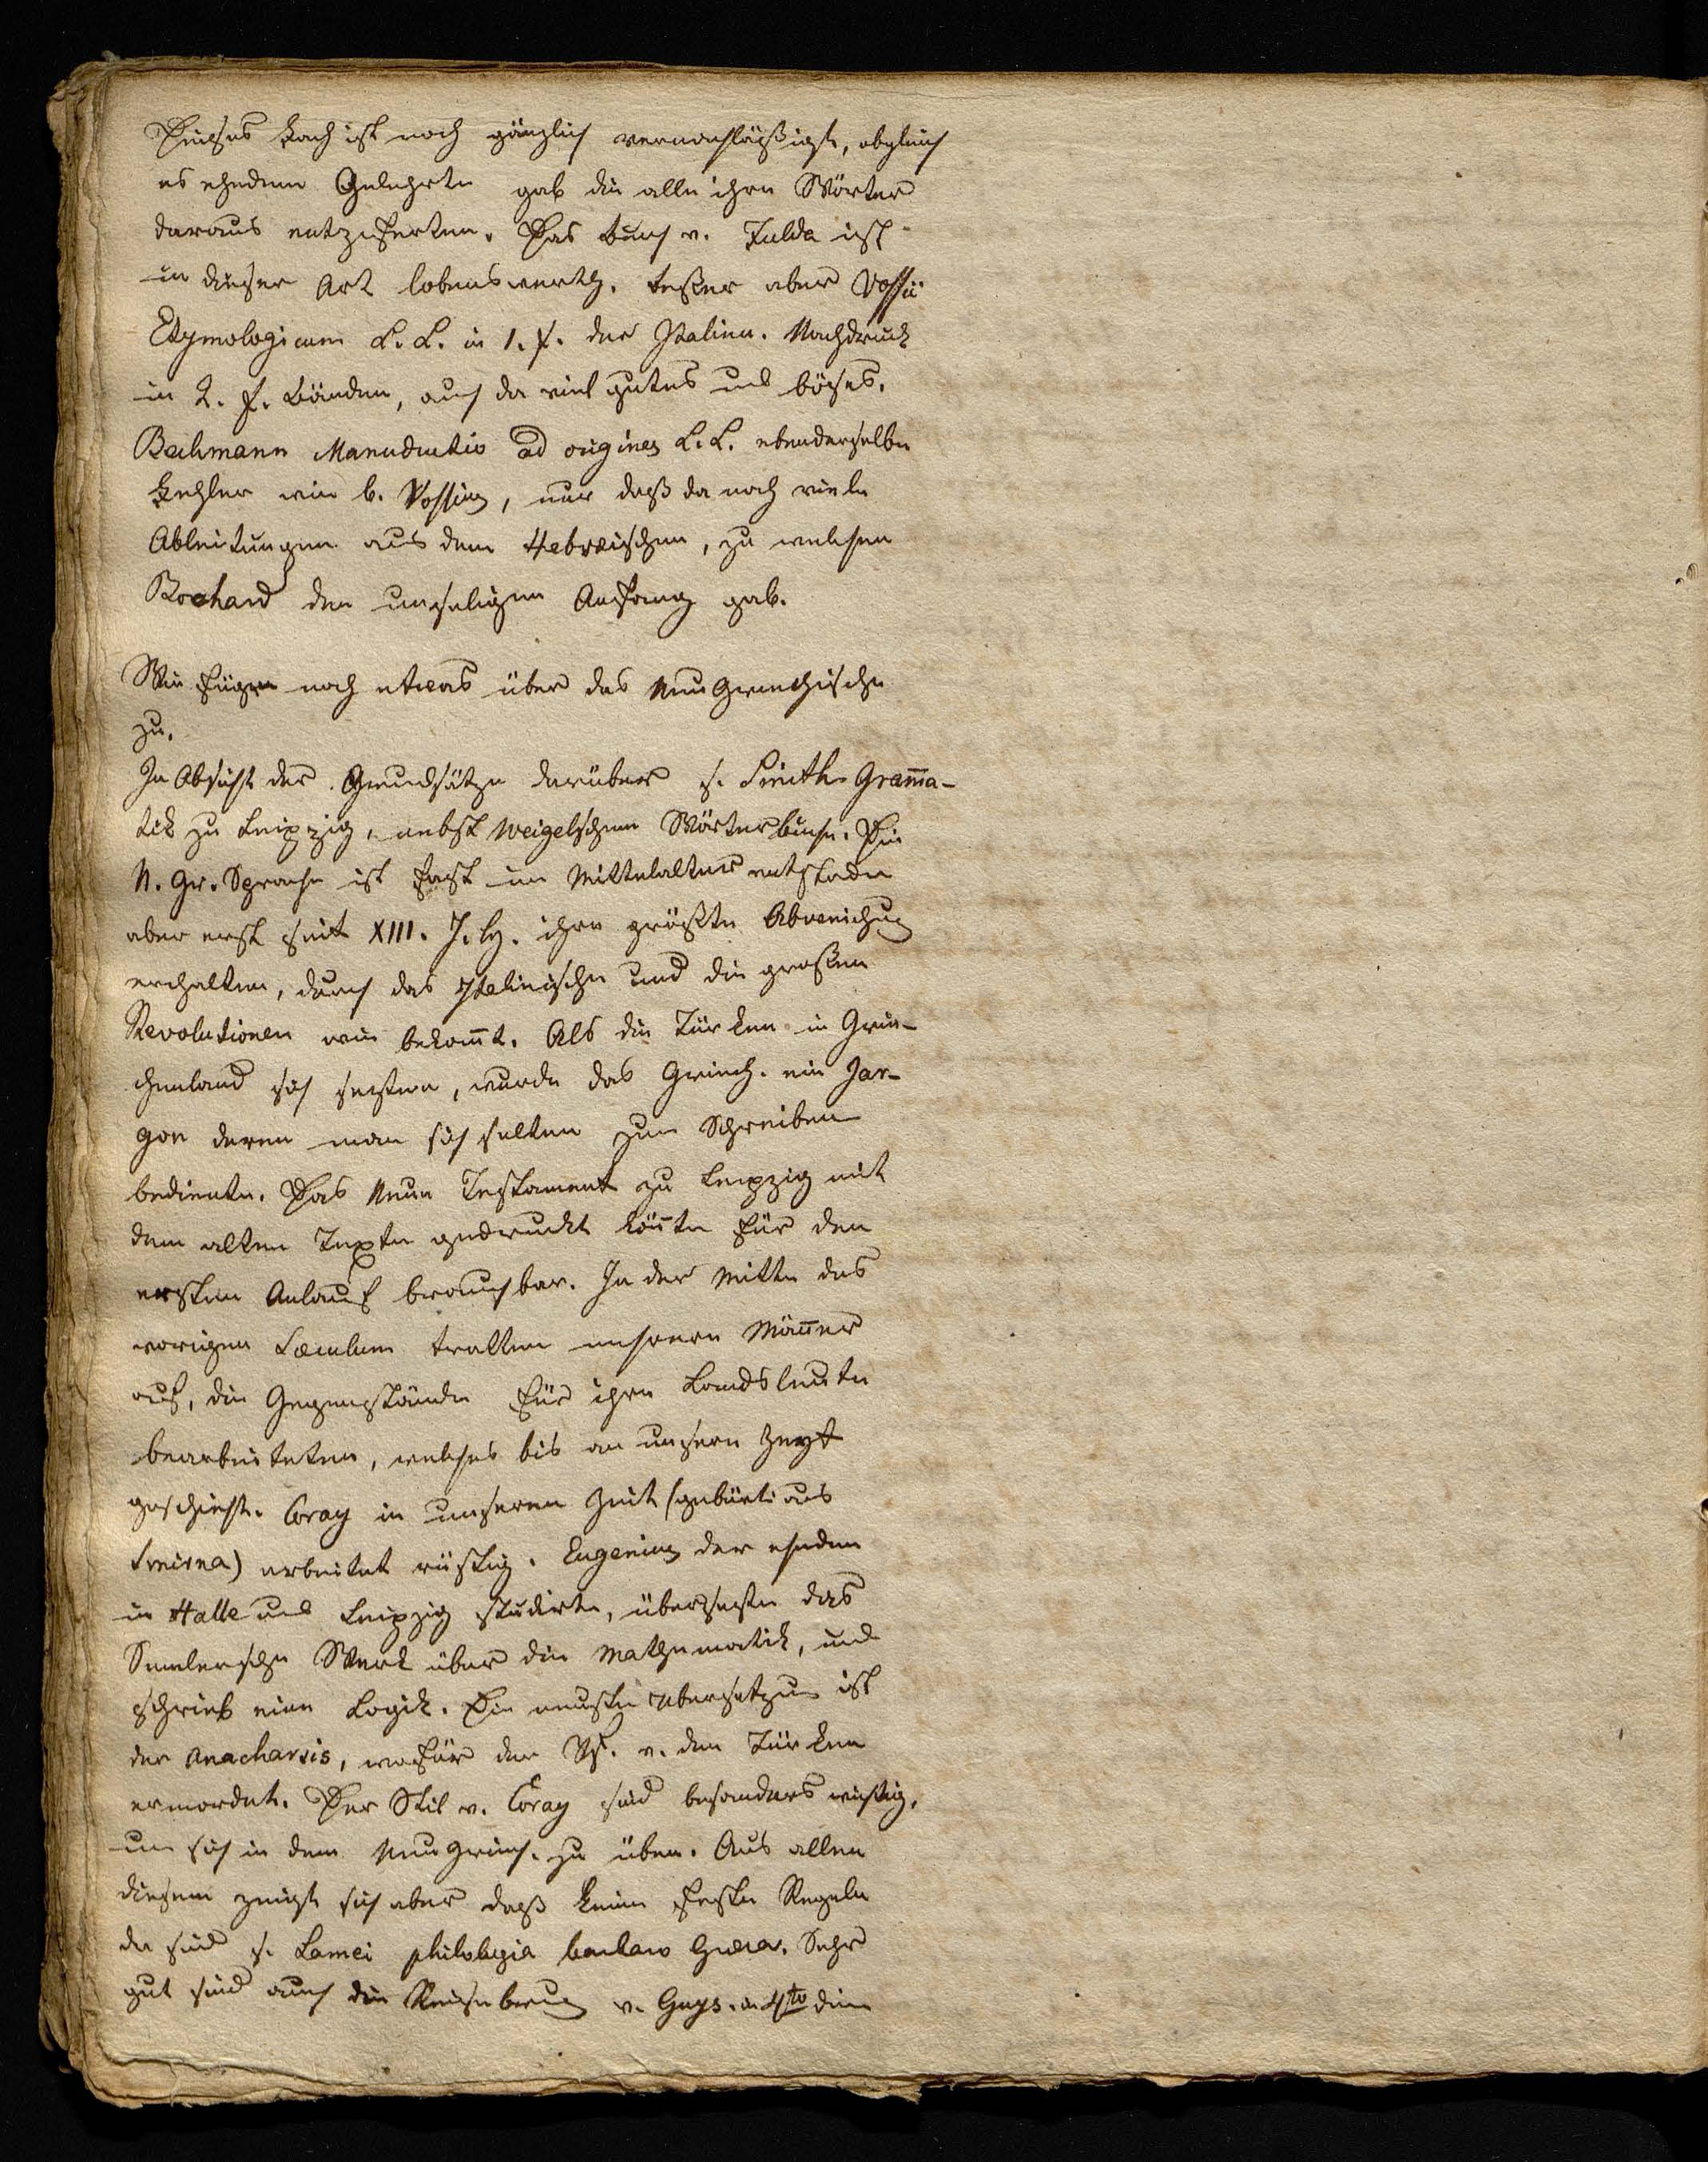 Dieses Fach ist noch gänzlich vernachläßigt, obgleich
es ehedem Gelehrte gab die alle ihre Wörter
daraus entziferten. Das Buch v. Fulda ist
in dieser Art lobenswerth. besser aber Vossii
Etymologicum L. L. in 1. f. der Italien. Nachdruck
in 2. f. Bänden, auch da viel gutes und böses.
Bechmann Manuductio ad origines L. L. ebenderselbe
Fehler wie b. Vossius, nur daß da noch viele
Ableitungen aus dem Hebræischen, zu welchen
Bochard den unseligen Anfang gab.
Wir fügen noch etwas über das Neu Griechische
zu.
In Absicht der Grundsätze darüber s. Gramma-
tik zu Leipzig, nebst Weigelschem Wörterbuche. Die
N. Gr. Sprache ist fast im Mittelalter entstaden
aber erst seit XIII. J. h. ihre größte Abweichug
erhalten, durch das Italienische und die großen
Revolutionen wie bekannt. Als die Türken in Grie-
chenland sich sezten, wurde das Griech. ein Jar-
gon deren man sich selten zum Schreiben
bediente. Das Neue Testament zu Leipzig mit
dem alten Texte gedruckt könte für den
ersten Anlauf brauchbar. In der Mitte des
vorigen Sæculum tratten mehrere Männer
auf, die Gegenstände für ihre Landsleute
bearbeiteten, welches bis an unsere Zeyt
geschieht. Coray in unserem Zeit (gebürti aus
Smirna) arbeitet rüstig. Eugenius der ehedem
in Halle und Leipzig studirte, übersezte das
Seemlersche Werk über die Mathematik, und
schrieb eine Logik. Die neuste Übersetzung ist
der Anacharsis, wofür der Vf. v. den Türken
ermordet. Der Stil v. Coray sind besonders wichtig,
um sich in dem Neu Griech. zu üben. Aus allen
diesem zeigt sich aber daß keine feste Regeln
da sind s. Lamei philologia barbaro Græca. Sehr
gut sind auch die Reisebeung v. Guys. in 4to die